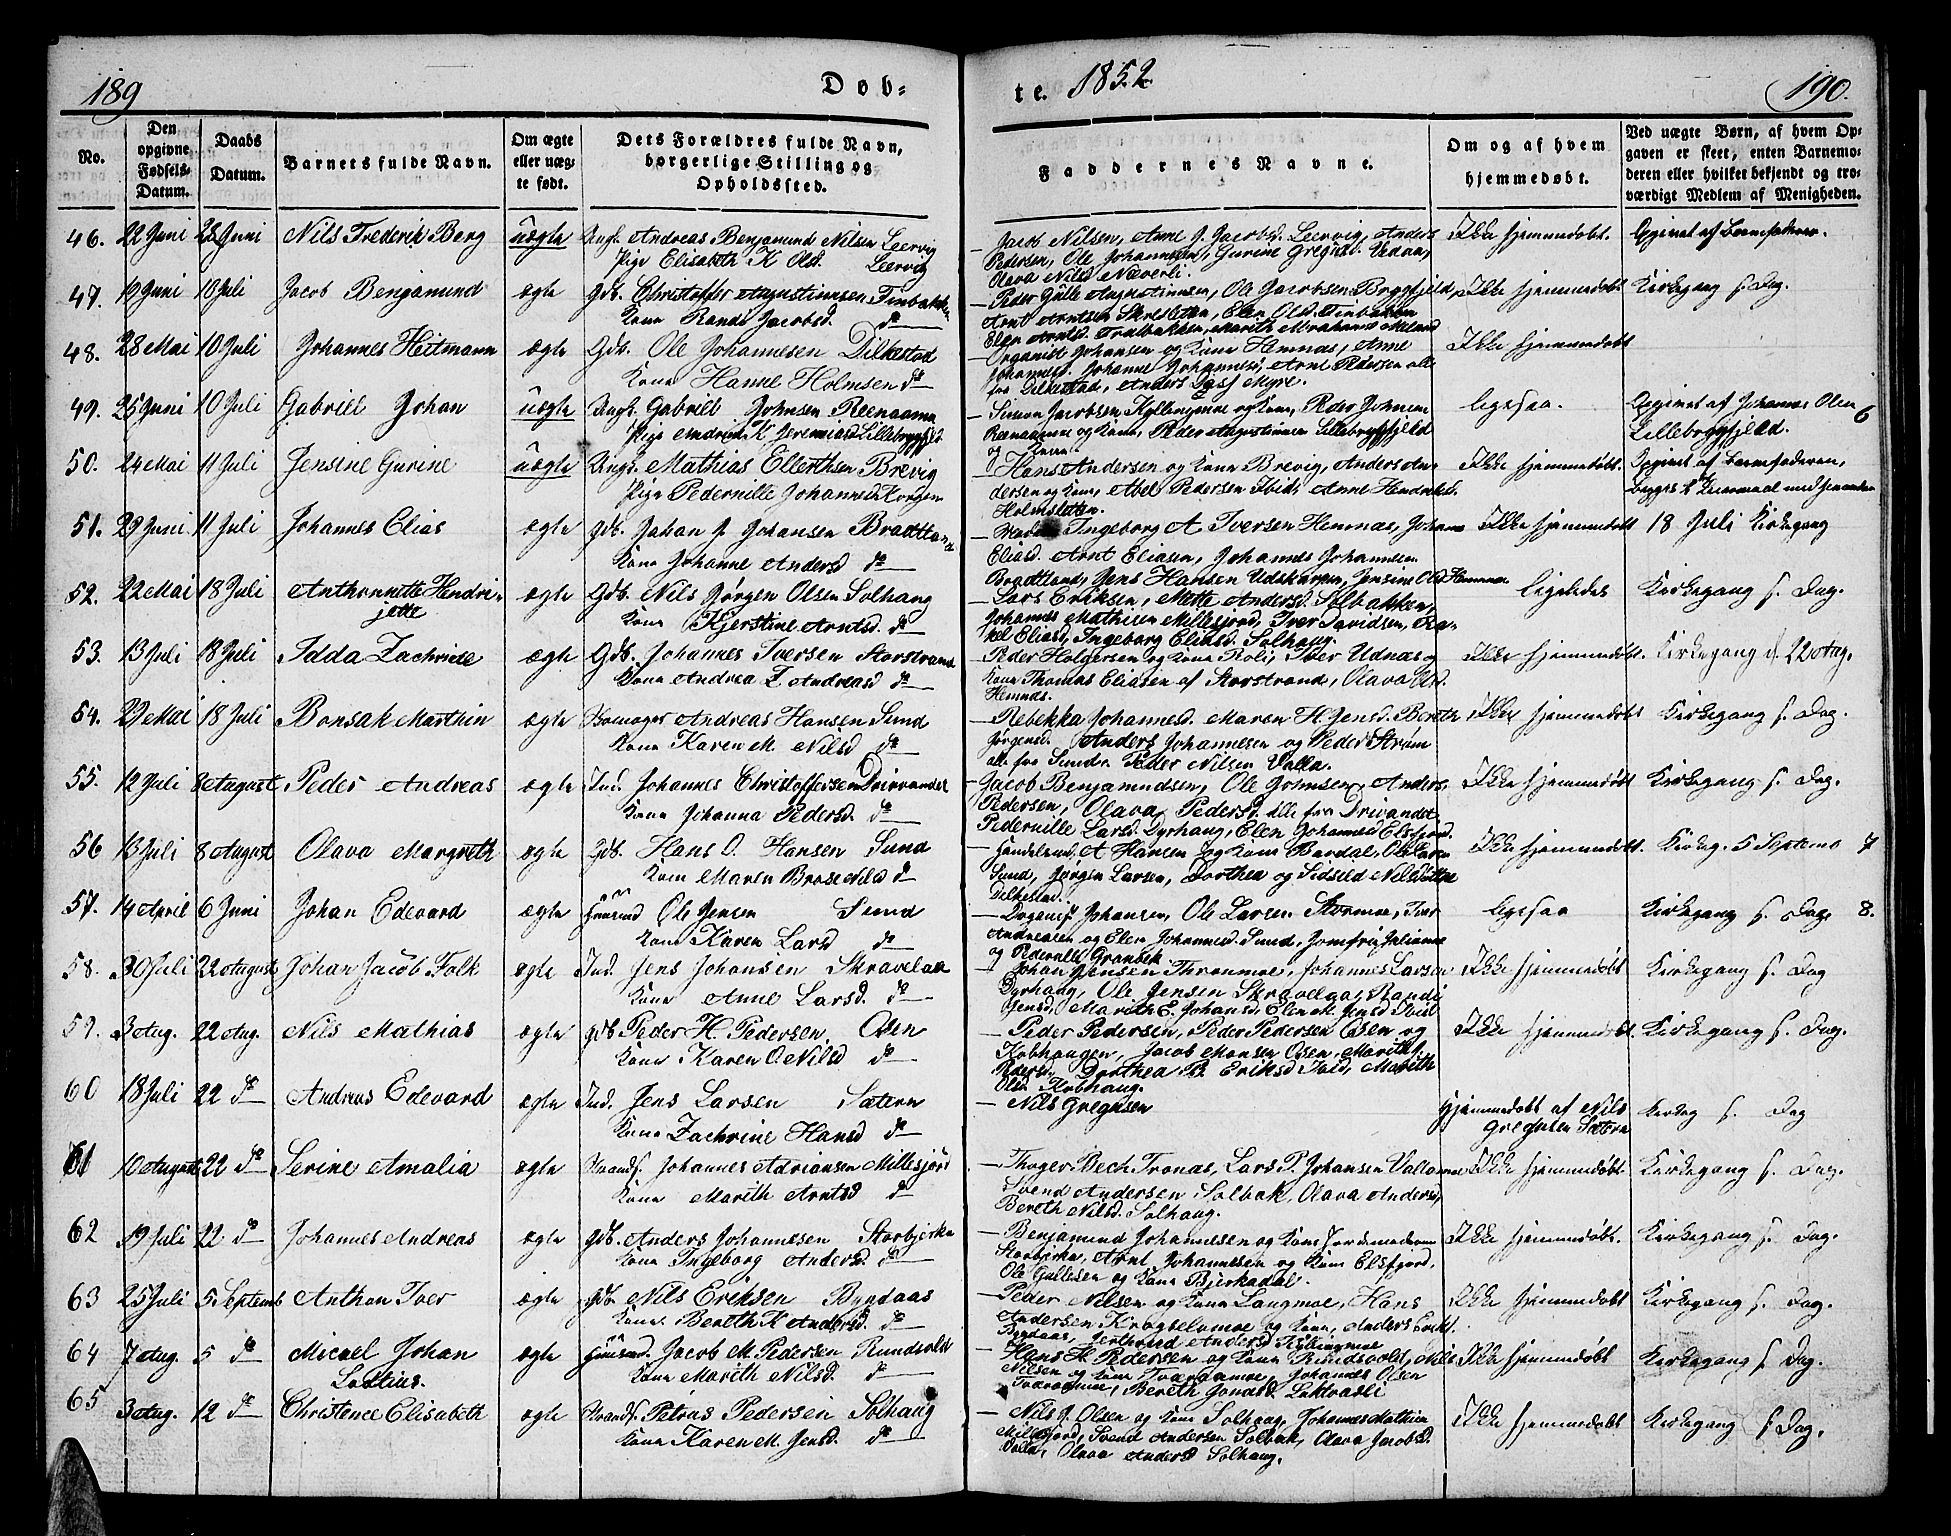 189
Døb-
te. 1852
190.
No.
Den opgivne Fødsels-Datum.
Daabs Datum.
Barnets fulde Navn.
Om ægte eller uægte født.
Dets Forældres fulde Navn, borgerlige Stilling og Opholdssted.
Faddernes Navne.
Om og af hvem hjemmedøbt.
Ved uægte Børn, af hvem Opgaven er skeet, enten Barnemoderen eller hvilket bekjendt og troværdigt Medlem af Menigheden.
46. 22 Juni 28 Juni Nils Frederik Berg uægte Ungk. Andreas Benjamund Nilsen Leervig
Pige Elisabeth K Olsd. Leervig
Jacob Nilsen, Anne J. Jacobsd. Leervig, Anders
Pedersen, Ole Johannesen, Gurine Gregusd. Vedaa,
Olava Nilsd Næverli.
Ikke hjemmedøbt. Opgivet af Barnefaderen.
47. 19 Juni 10 Juli Jacob Benjamund ægte Gdb. Christoffer Augustinusen Finbakken
Kone Randi Jacobsd. do
Peder Gulle Augustinusen, Ole Jacobsen Bryggfjeld,
Arnt Arntsen Skresletten, Elen Olsd. Finbakken
Elen Arntsd. Fralbakken, Marith Abrahamsd
Ikke hjemmedøbt Kirkegang s. Dag.
48. 28 Mai 10 Juli Johannes Heitmann ægte Gdb. Ole Johannesen Dilkestad
Kone Hanne Holmsen do
Organist Johansen og Kone Hemnæs, Anne
Johannesd. Johanne Johannesd, Arnt Pedersen alle
fra Dilkestad, Anders Dass Myre.
Ikke hjemmedøbt
49. 25 Juni 10 Juli Gabriel Johan uægte Ungk. Gabriel Johnsen Reenaamo
Pige Andrine K Jeremiasd Lillebryggfjeld
Simon Jacobsen Kyllingmoe og Kone, Peder Johnsen
Reenaamoe og Kone, Peder Augustinusen Lillebryggfjeld
og Kone.
ligesaa. Opgivet af Johannes Olsen
Lillebryggfjeld.
6
50. 24 Mai 11 Juli Jensine Gurine uægte Ungk. Mathias Ellertsen Brevig
Pige Pedernille Johannesd Korgen
Hans Andersen og Kone Brevig, Anders An-
dersen og Kone, Abel Pedersen Ibid, Anne Hendriksd.
Holmsletten.
Ikke hjemmedøbt. Opgivet af Barnefaderen,
51. 29 Juni 11 Juli Johannes Elias ægte Gdb. Johan J. Johansen Bradtland
Kone Johanne Andersd do
Ingeborg A Iversen Hemnæs, Johanne
Eliasd. Arnt Eliasen, Johannes Johannesen
Bradtland, Jens Hansen Udskarpen, Jensine Olsd Hemnæs
Ikke hjemmedøbt 18 Juli Kirkegang
52. 22 Mai 18 Juli Anthonnette Hendri-
jette
ægte Gdb. Nils Jørgen Olsen Solhaug
Kone Kjerstine Arntsd. do
Lars Eriksen, Mette Andersd. Solbakken,
Johannes Mathisen Millesjord, Iver Davidsen, Ra-
kel Eliasd, Ingeborg Eliasd. Solhaug.
ligeledes Kirkegang s. Dag.
53. 13 Juli 18 Juli Idda Zachrine ægte Gdb. Johannes Iversen Storstrand
Kone Andrea Z. Andreasd do
Peder Holgersen og Kone Roli, Iver Udnæs og
Kone Thomas Eliasen af Storstrand, Olava Olsd.
Hemnæs.
Ikke hjemmedøbt. Kirkegang d. 22 Aug.
54. 29 Mai 18 Juli Bonsak Marthin ægte Skomager Andreas Hansen Sund
Kone Karen M. Nilsd do
Rebekka Johannesd. Maren H. Jensd. Bereth
Jørgensd. Anders Johannesen og Peder Strøm
alle fra Sund. Peder Nilsen Valla.
Ikke hjemmedøbt Kirkegang s. Dag.
55. 12 Juli 8 August Peder Andreas ægte Ind. Johannes Christoffersen Drivvandet
Kone Johanna Pedersd. do
Jacob Benjamundsen, Ole Johnsen, Anders
Pedersen, Olava Pedersd. alle fra Drivandet
Pedernille Larsd. Dyrhaug, Elen Johannesd Elsfjord.
Ikke hjemmedøbt Kirkegang s. Dag.
56 13 Juli 8 August Olava Margreth ægte Gdb. Hans O. Hansen Sund
Kone Maren Brose Nilsd do
A Hansen og Kone Bardal, Ole Larsen
Sund, Jørgen Larsen, Dorthea og Sidseld Nilsdøttre
Dilkestad.
Ikke hjemmedøbt. Kirkeg. 5 September
7
57. 14 April 6 Juni Johan Edevard ægte Huusmd Ole Jensen Sund
Kone Karen Larsd do
Johansen, Ole Larsen Stormoe, Iver
Andreasen og Elen Johannesd Sund, Jomfru Juliane
og Pedernille Granbek
ligesaa Kirkegang s. Dag.
8.
58. 30 Juli 22 August Johan Jacob Falk ægte Ind. Jens Johansen Skravelaae
Kone Anne Larsd. do
Johan Jensen Thronmoe, Johannes Larsen
Dyrhaug, Ole Jensen Skravelgaa, Randi
Jensd, Marith E. Johansd, Elen M. Jensd Ibid
Ikke hjemmedøbt Kirkegang s. Dag
59. 3 Aug. 22 Aug. Nils Mathias ægte Gdb Peder H. Pedersen, Osen
Kone Karen O. Nilsd do
Peder Pedersen, Peder Pedersen Osen og
Kobhaugen, Jacob Monsen Osen, Marith J.
Pedersd. Dorthea B. Eriksd Ibid, Marith
Olsd. Kobhaug.
Ikke hjemmedøbt. Kirkegang s. Dag.
60 18 Juli 22 do Andreas Edevard ægte Ind. Jens Larsen Sætern
Kone Zachrine Hansd do
Nils Gregusen
Hjemmedøbt af Nils
Gregusen Sætern
Kirkeg s. Dag
61 10 August 22 do Serine Amalia ægte Strands. Johannes Adriansen Millesjord
Kone Marith Arntsd do
Thoger Bech Tronæs, Lars P. Johansen Vallamo
Svend Andersen Solbak, Olava Andersd,
Bereth Nilsd. Solhaug.
Ikke hjemmedøbt. Kirkegang s. Dag.
62 19 Juli 22 do Johannes Andreas ægte Gdb. Anders Johannesen Storbjerka
Kone Ingeborg Andersd. do
Benjamund Johannesen og Kone Jordemoderen
Storbjerka, Arnt Johannesen og Kone Elsfjord,
Ole Gullesen og Kone Bjerkadal.
Ikke hjemmedøbt. Kirkegang s. Dag.
63 25 Juli 5 Septemb Anthon Iver ægte Gdb Nils Eriksen Bygdaas
Kone Bereth K Andersd. do
Peder Nilsen og Kone Langmoe, Hans
Andersen Krogbelamoe og Kone, Anders Erikt.
Bygdaas, Andersd Kyllingmoe
Ikke hjemmedøbt Kirkegang s. Dag.
64 7 Aug. 5 do Micael Johan
Loutius.
ægte Huusmd. Jacob M. Pedersen Rundvold
Kone Marith Nilsd. do
Hans H. Pedersen og Kone Rundvold, Nils
Nilsen og Kone Tveraamoe, Johannes Olsen
Tveraamoe, Bereth Jonasd. Laktvasli
Ikke hjemmedøbt Kirkegang s. Dag.
65 3 Aug. 12 do Christence Elisabeth ægte Strands. Petrus Pedersen Solhaug
Kone Karen M. Jensd. do
Nils J. Olsen og Kone Solhaug, Johannes Mathisen
Millesjord, Svend Andersen Solbak, Olava Jacobsd.
Valla, Olava Andersd Solhaug.
Ikke hjemmedøbt Kirkegang s. Dag.